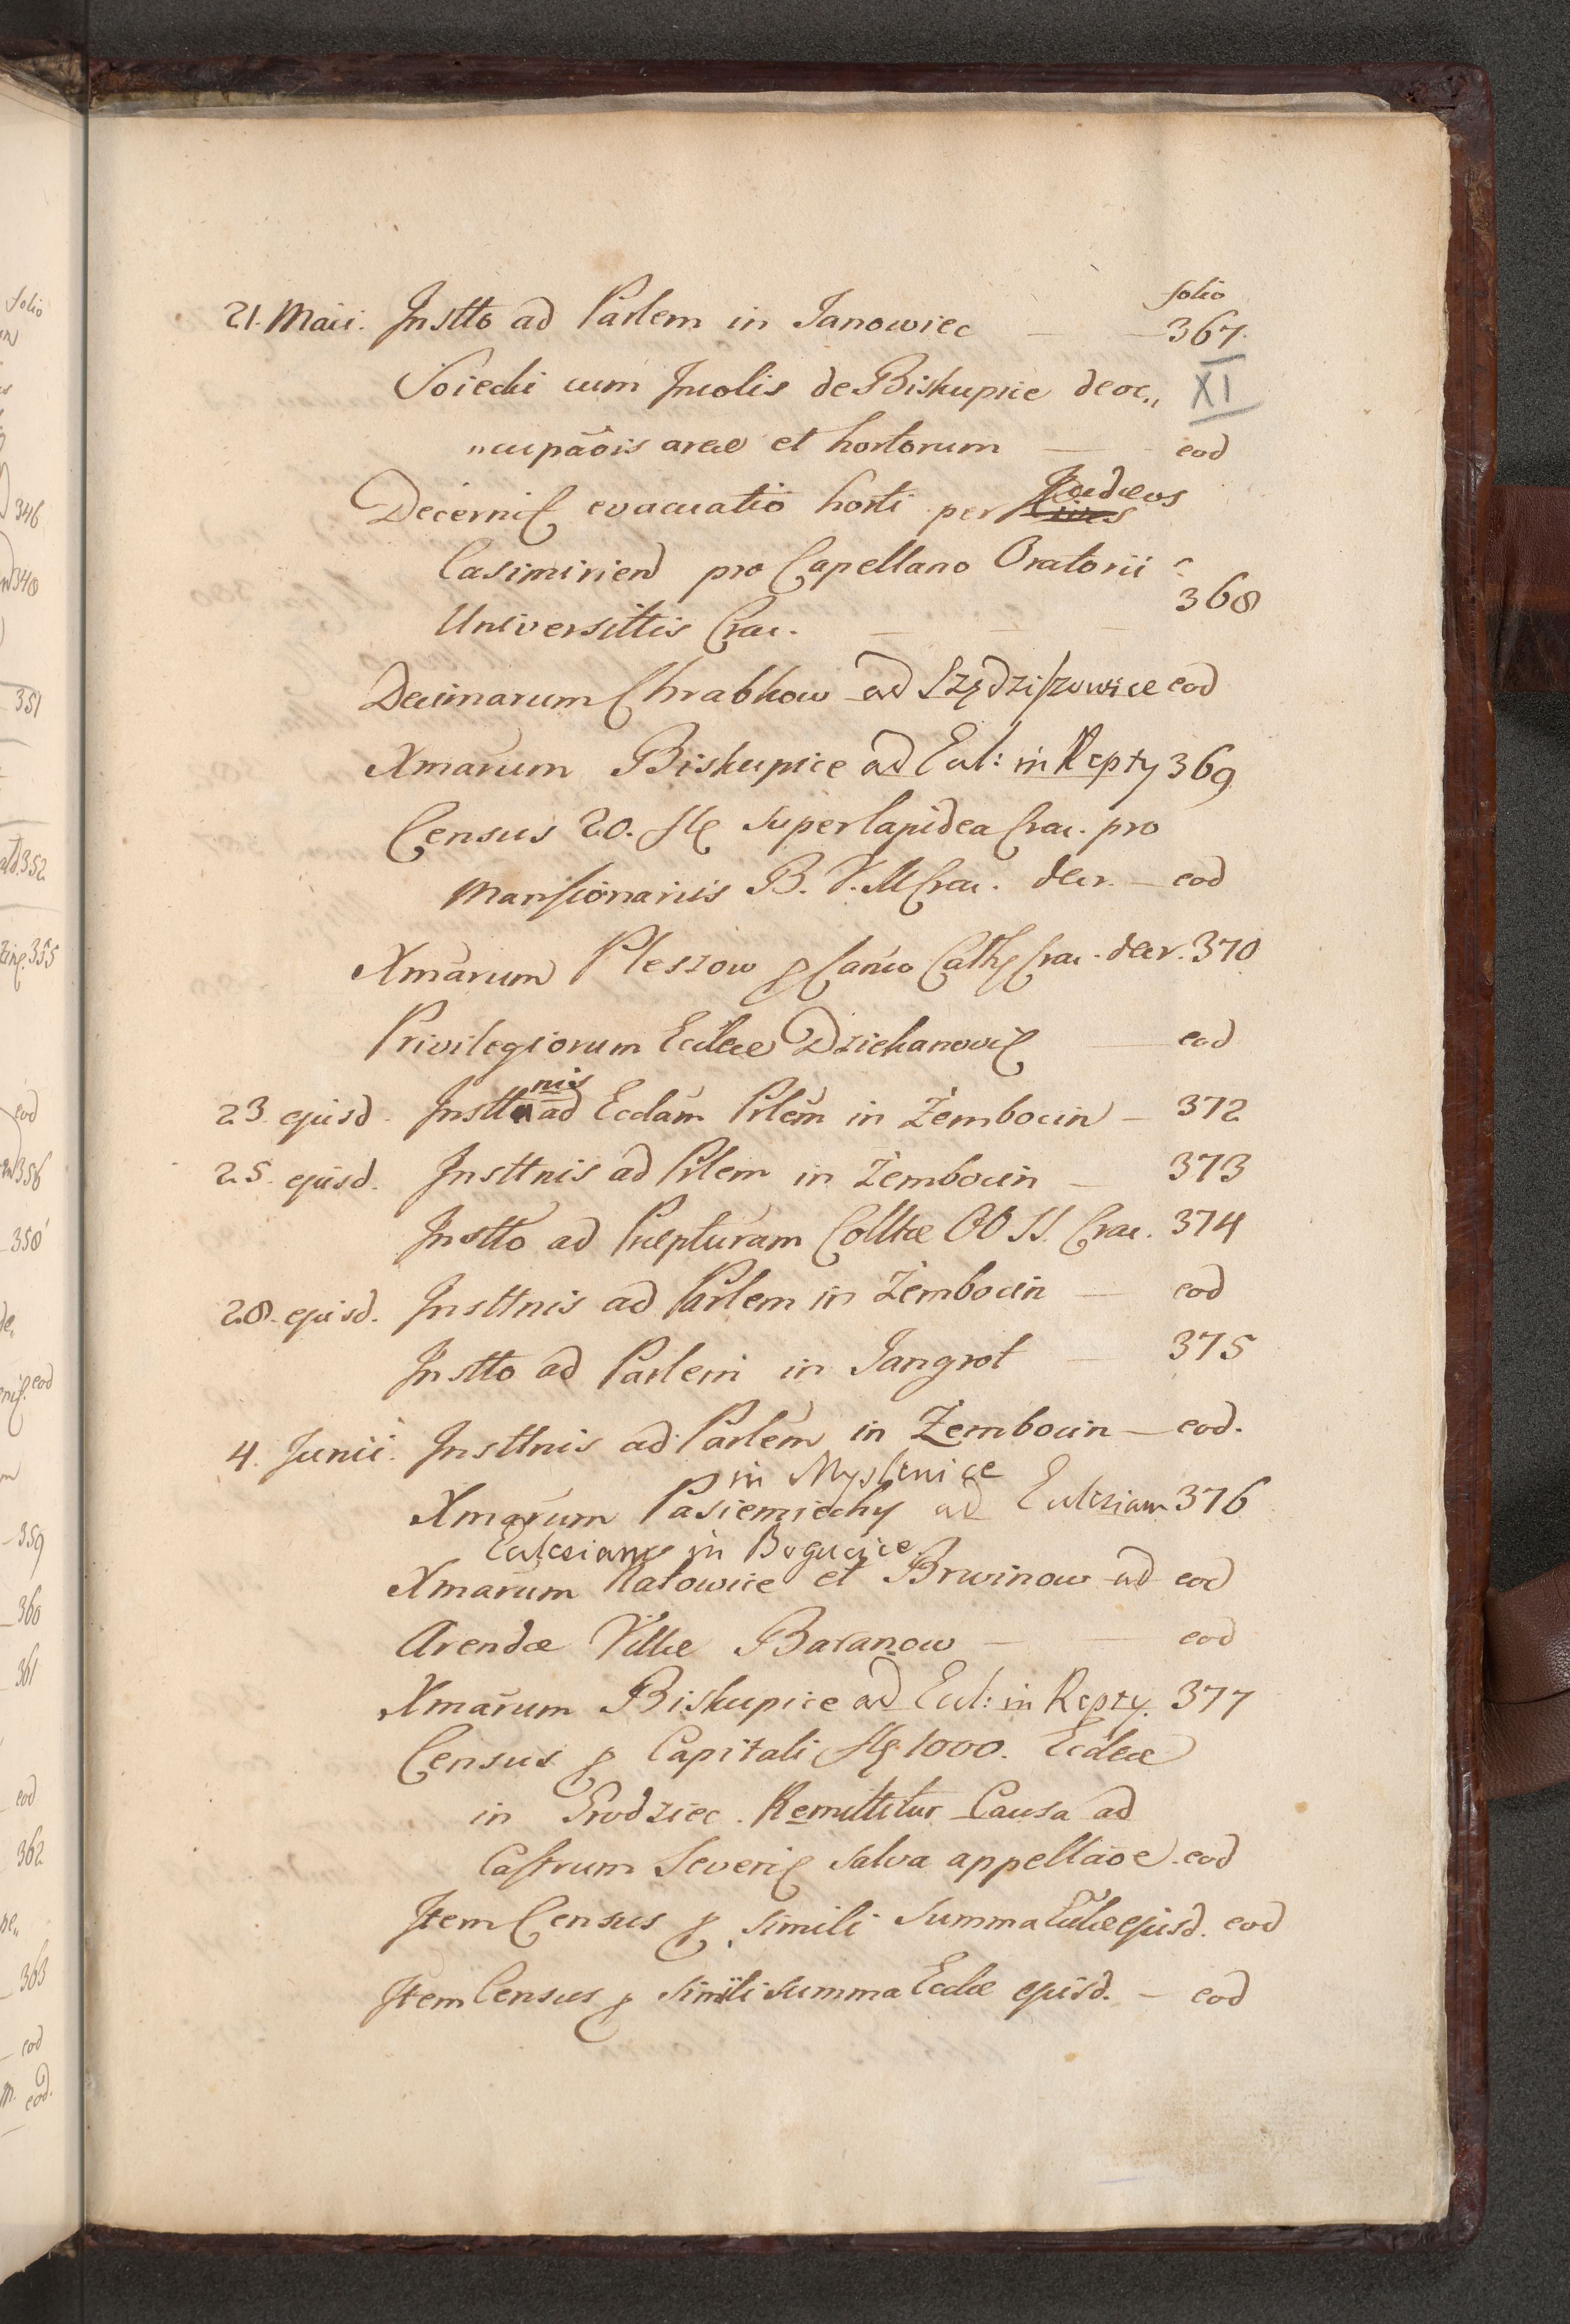 folio
21. Maii. Instto ad Parlem in Janowiec — 367.
Soiecki cum Incolis de Biskupice deoc„ XI
„cupaõis areae et hortorum — eod
Judaeos
Decernit evacuatio horti per Cives
Casimirien pro Capellano Oratorii
Universittis Crac. — — — 368
Decimarum Chrabkow ad Szędziszowice eod
Xmarum Biskupice ad Eccl: in Repty 369
Census 20. fl super lapidea Crac. pro
Mansionariis B. V. M Crac. decr. — eod
Xmarum Pleszow Canco Cath Crac. decr. 370
Privilegiorum Ecclae Dziekanovic — eod
nis
23. ejusd. Instt ad Ecclam Prlem in Zembocin — 372
25. ejusd. Insttnis ad Prlem in Zembocin — 373
Instto ad Praepturam Colltae OO SS. Crac. 374
28. ejusd. Insttnis ad Parlem in Zembocin — eod
Instto ad Parlem in Jangrot — 375
4. Junii. Insttnis ad Parlem in Zembocin — eod.
in Myslenice
Xmarum Pasiemiechy ad Ecclesiam 376
Ecclesiam in Bogucice
Xmarum Katowice et Brwinow ad eod
Arendae Villae Baranow — — eod
Xmarum Biskupice ad Eccl: in Repty. 377
Census Capitali fl 1000. Ecclae
in Grodziec. Remittitur Causa ad
Castrum Severi salva appellaõe. eod
Item Census simili summa Ecclae ejusd. eod
Item Census simili summa Ecclae ejusd. — eod
folio
346
348
351
352
355
eod
356
358
eod
359
360
361
eod
362
363
eod
eod.